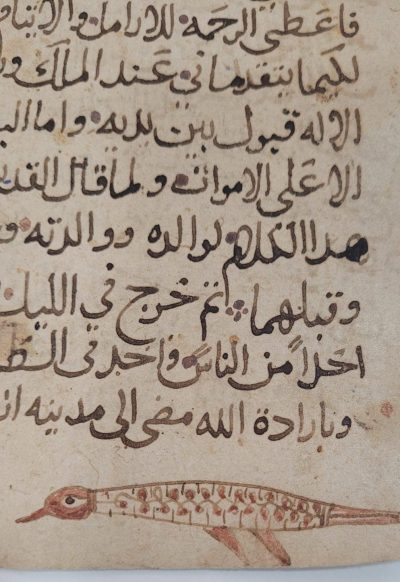 فاعطي الرحمه للارامل والايتام
لكيما يتقدماني عند الملك
الاله قبول بين يديه واما
الا على الاموات ولما قال القد
هدا الكلام لوالده ووالدته و
وقبلهما تم خرج في الليل
احداً من الناس واخد في الط
وبارادة الله مضى الى مدينه